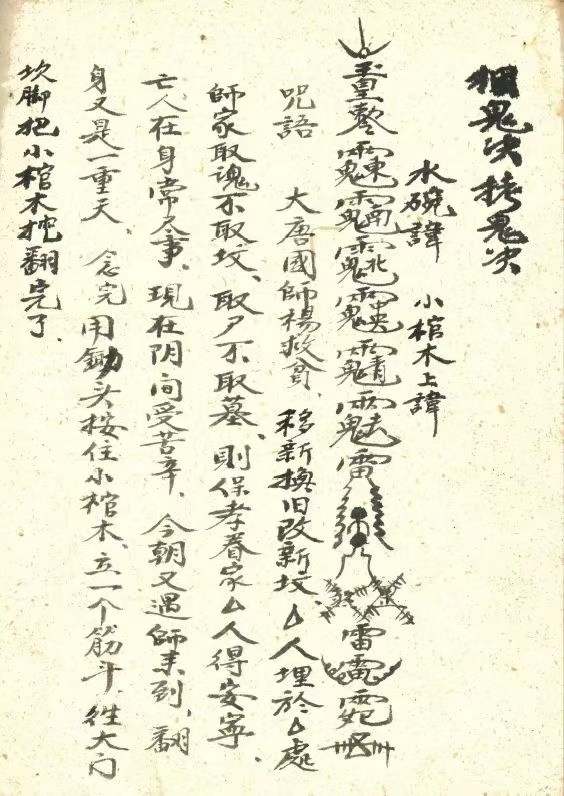 捆鬼决捧鬼决
水碗諱 小棺木上諱
咒語 大唐國師楊救貧、移新換旧改新坟、厶人埋於厶處
師家取魂不取坟、取夕不取墓、則保孝眷家厶人得安寧、
亡人在身常尽事、現在阴间受苦辛、今朝又遇師来到、翻
身又是一重天、念完用鋤头按住小棺木、立一个筋斗、往大门
坎脚把小棺木挖翻完了、